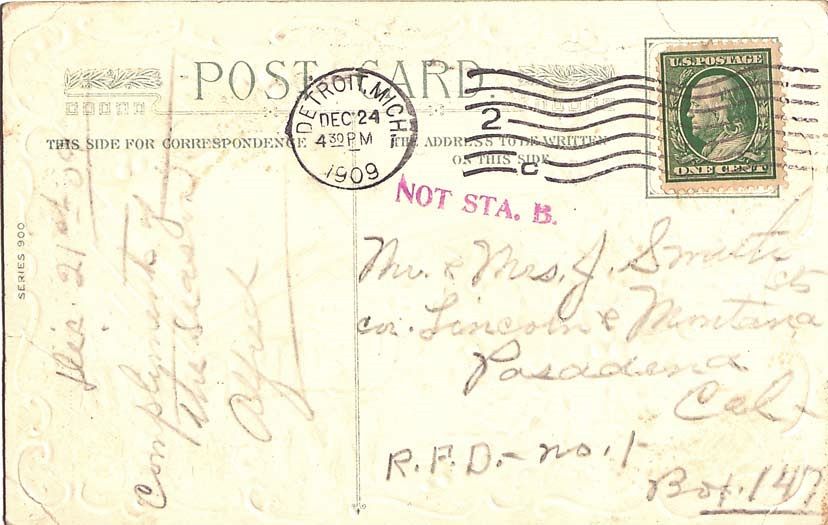 POST CARD.
THIS SIDE FOR CORRESPONDENCE
THE ADDRESS TO BE WRITTEN
ON THIS SIDE
DETROIT, MICH.
DEC 24
4 30 PM
1909
2
C
U.S. POSTAGE
ONE CENT
NOT STA. B.
SERIES 900
Dec. 21st 09
Complyments of
the season
Alfred
Mr. & Mrs. J. Smith
cor. Lincoln & Montana sts
Pasadena
Cal.
R.F.D. - no. 1 -
Box 147